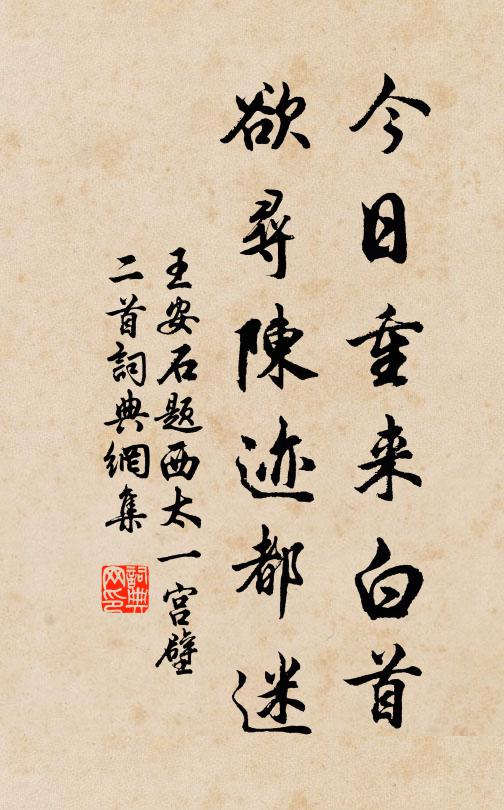 今日重来白首
欲尋陳迹都迷
王安石题西太一宫壁
二首詞典網集
詞典网印